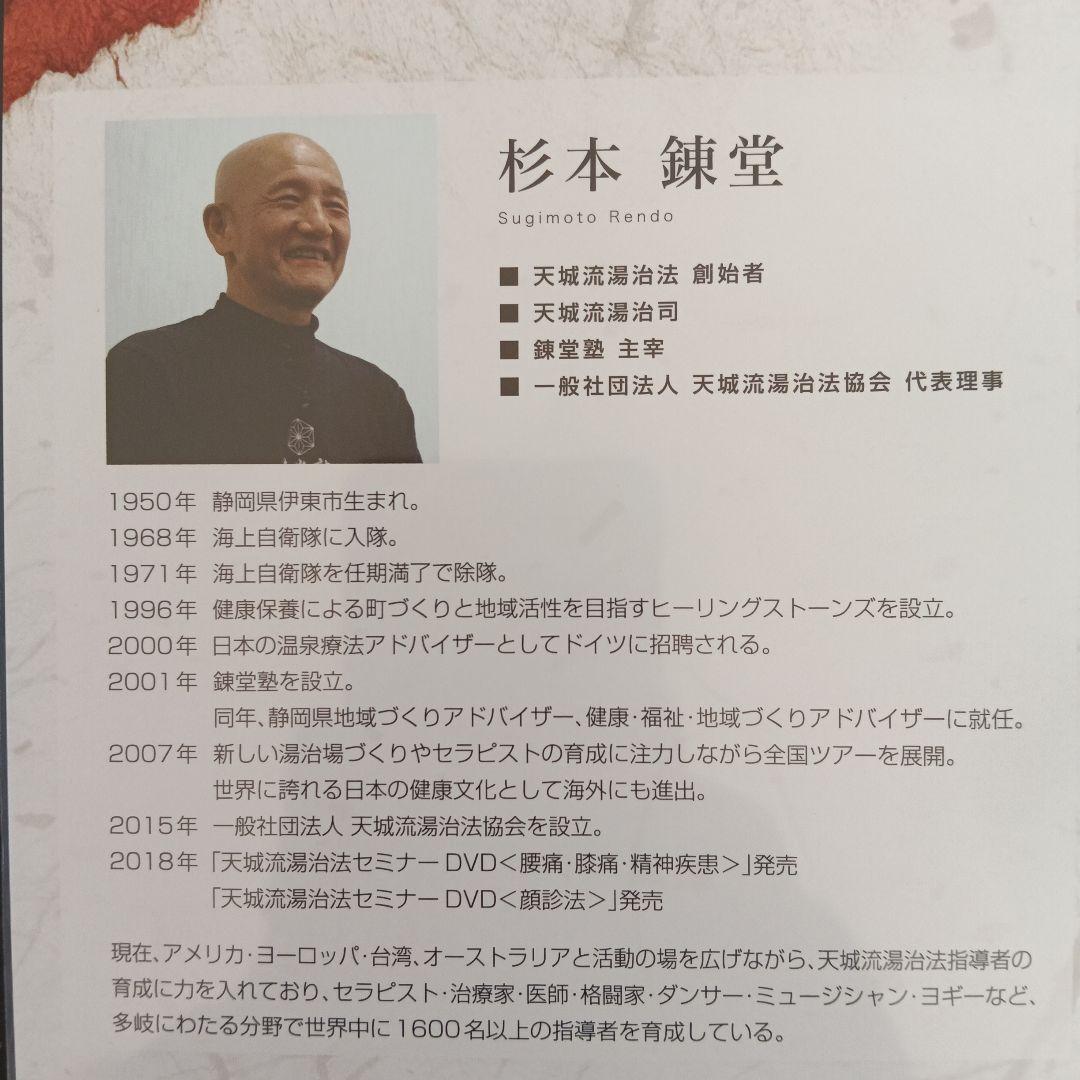 杉本 錬堂
Sugimoto Rendo
■ 天城流湯治法 創始者
■ 天城流湯治司
■ 錬堂塾 主宰
■ 一般社団法人 天城流湯治法協会 代表理事
1950年 静岡県伊東市生まれ。
1968年 海上自衛隊に入隊。
1971年 海上自衛隊を任期満了で除隊。
1996年 健康保養による町づくりと地域活性を目指すヒーリングストーンズを設立。
2000年 日本の温泉療法アドバイザーとしてドイツに招聘される。
2001年 錬堂塾を設立。
同年、静岡県地域づくりアドバイザー、健康・福祉・地域づくりアドバイザーに就任。
2007年 新しい湯治場づくりやセラピストの育成に注力しながら全国ツアーを展開。
世界に誇れる日本の健康文化として海外にも進出。
2015年 一般社団法人 天城流湯治法協会を設立。
2018年 「天城流湯治法セミナー DVD<腰痛・膝痛・精神疾患>」発売
「天城流湯治法セミナー DVD<顔診法>」発売
現在、アメリカ・ヨーロッパ・台湾、オーストラリアと活動の場を広げながら、天城流湯治法指導者の
育成に力を入れており、セラピスト・治療家・医師・格闘家・ダンサー・ミュージシャン・ヨギーなど、
多岐にわたる分野で世界中に1600名以上の指導者を育成している。